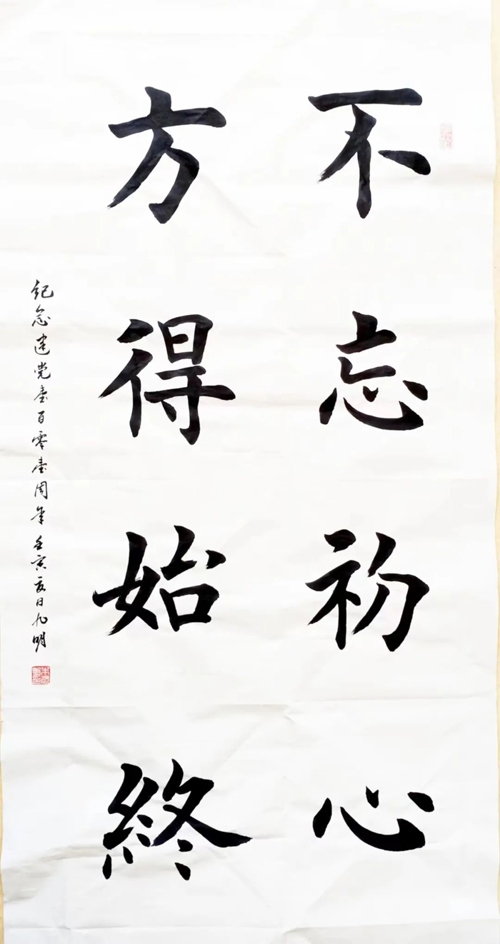 不忘初心
方得始終
紀念建党壹百零壹周年壬寅夏日九明